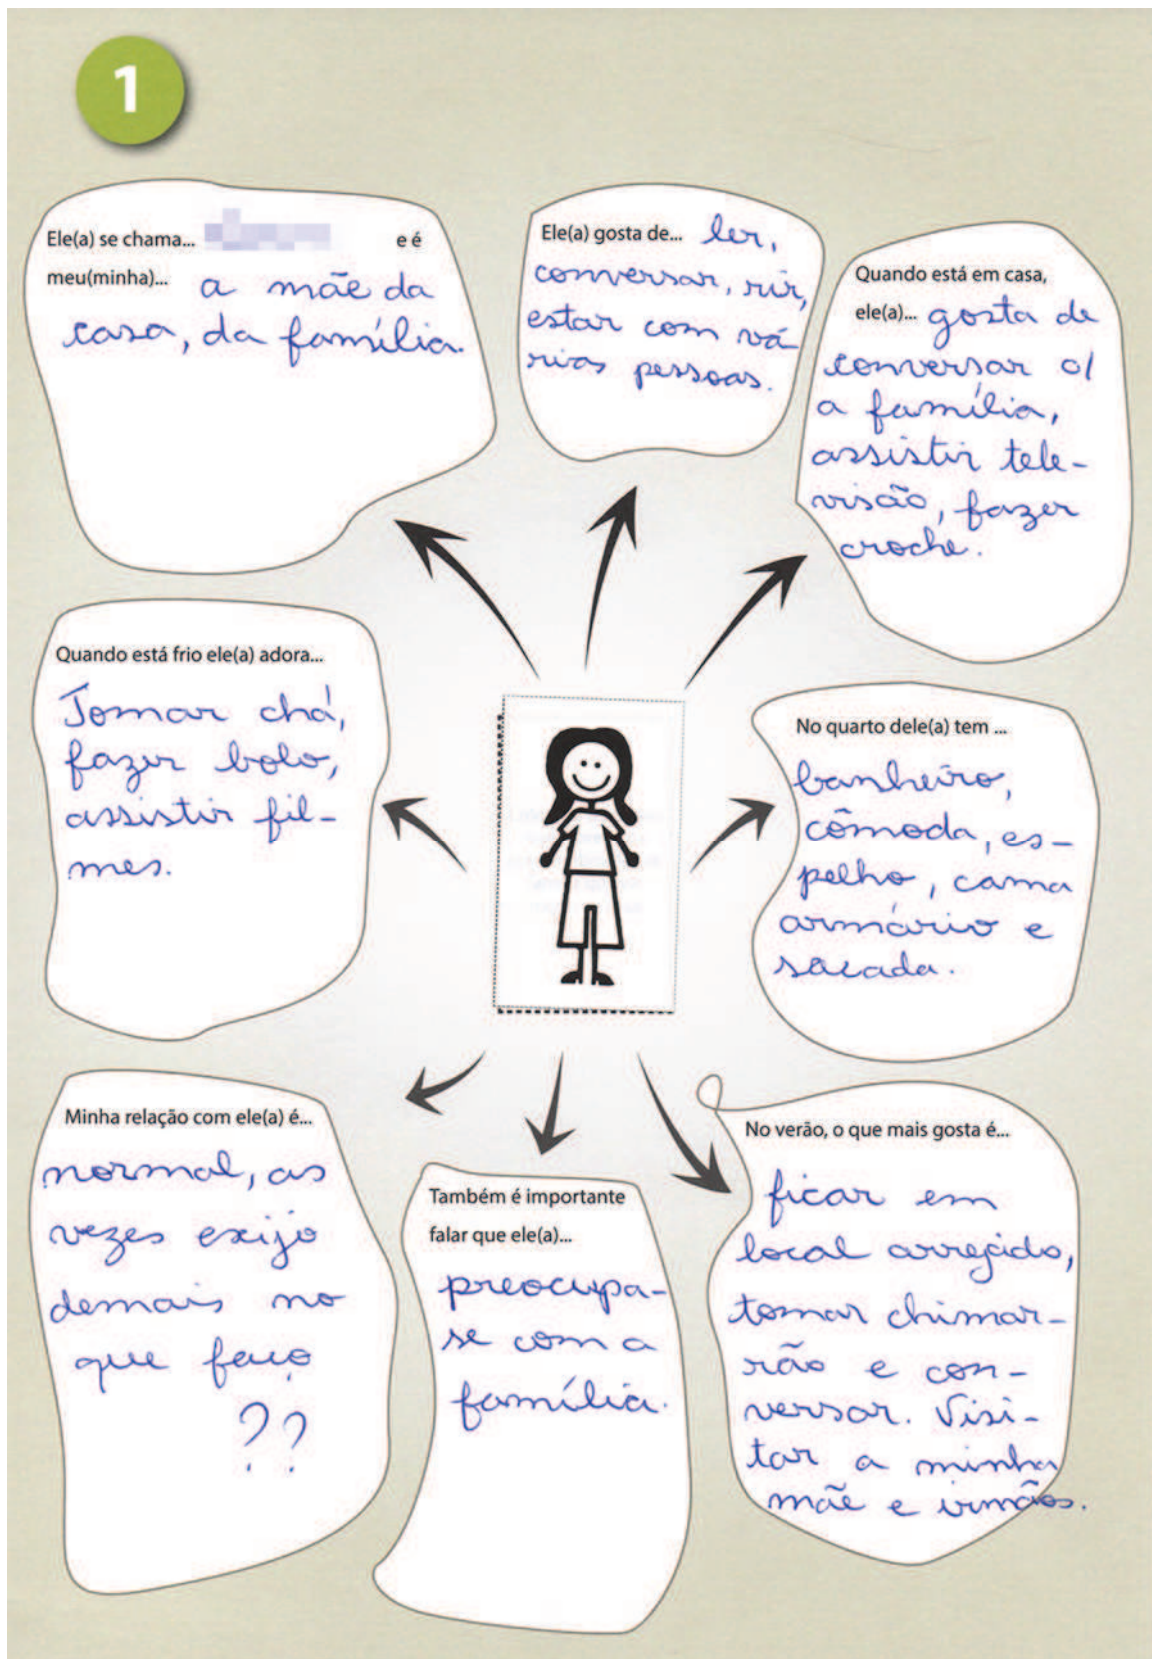 1
Ele(a) se chama... e é
meu(minha)... a mãe da
casa, da família.
Ele(a) gosta de... ler,
conversar, rir,
estar com vá
rias pessoas.
Quando está em casa,
ele(a)... gosta de
conversar c/
a família,
assistir tele-
visão, fazer
croche.
Quando está frio ele(a) adora...
Tomar chá,
fazer bolo,
assistir fil-
mes.
No quarto dele(a) tem ...
banheiro,
cômoda, es-
pelho, cama
armário e
sacada.
Minha relação com ele(a) é...
normal, as
vezes exijo
demais no
que faço
??
Também é importante
falar que ele(a)...
preocupa-
se com a
família.
No verão, o que mais gosta é...
ficar em
local arrejado,
tomar chimar-
rão e con-
versar. Visi-
tar a minha
mãe e irmãos.